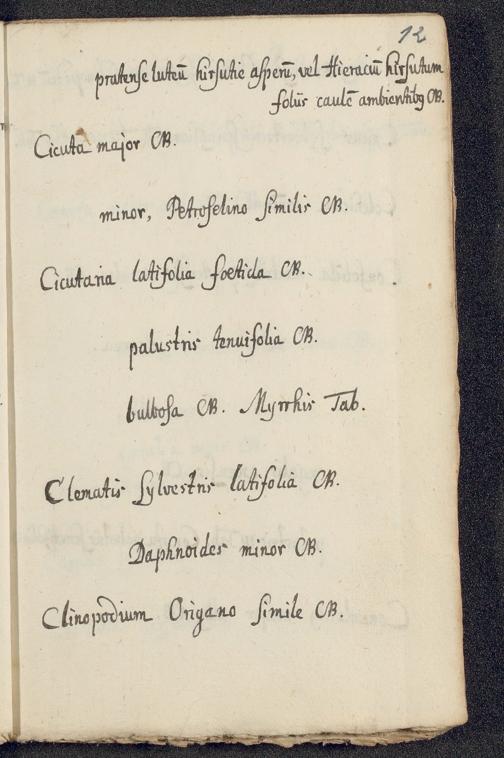 12
pratense luteũ hirsutie asperũ, vel Hieraciũ hirsutum
foliis caulẽ ambientibꝫ CB.
Cicuta major CB.
minor, Petroselino similis CB.
Cicutaria latifolia foetida CB.
palustris tenuifolia CB.
bulbosa CB. Myrrhis Tab.
Clematis sylvestris latifolia CB.
Daphnoides minor CB.
Clinopodium Origano simile CB.